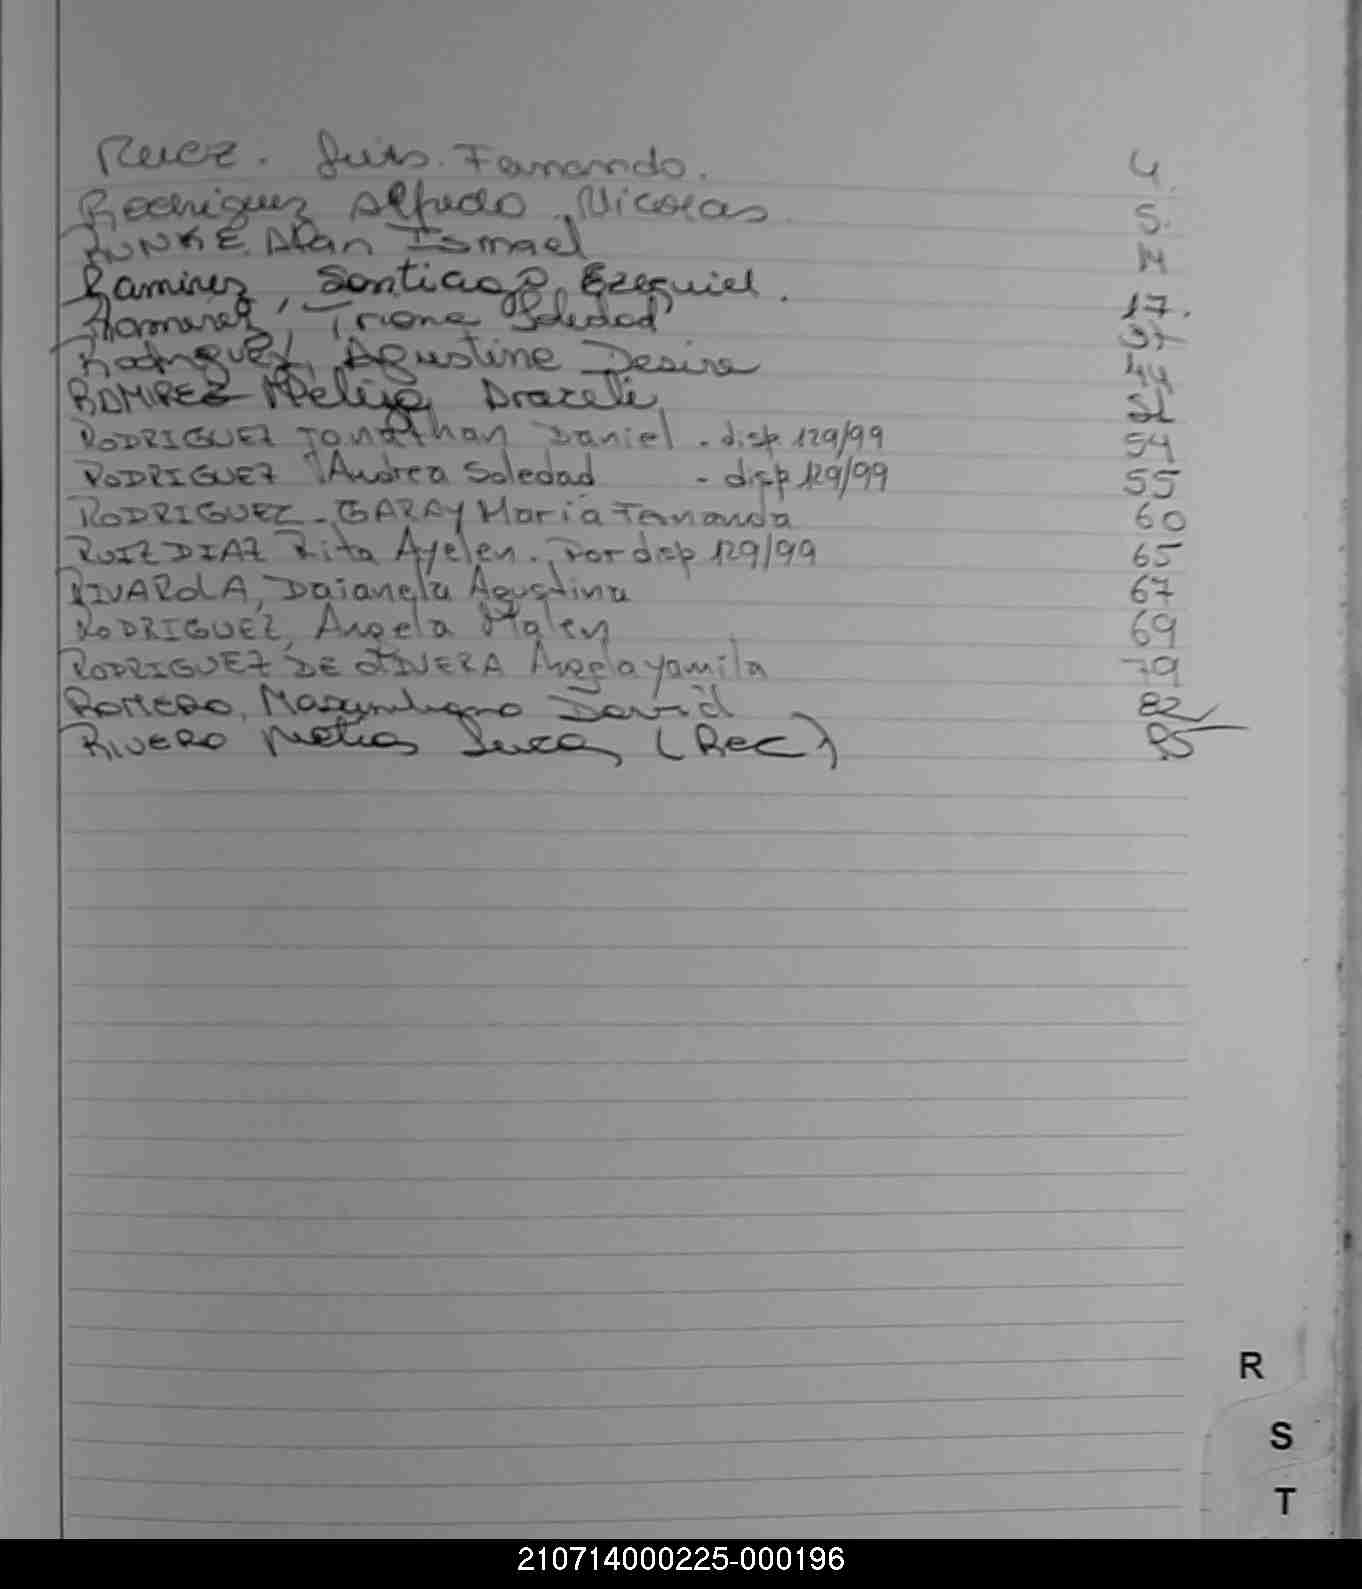 Ruez. Luis. Fernando. 4.
Rodriguez Alfredo Nicolas 5.
RUNKE. Alan Ismael
Ramirez, Santiago Ezequiel. 17.
Ramirez, Soledad 37
Rodriguez, Agustina Desire 44
RAMIREZ Araceli 52
RODRIGUEZ Jonathan Daniel - disp 129/99 54
RODRIGUEZ Andrea Soledad - disp 129/99 55
RODRIGUEZ - GARAY María Fernanda 60
RUIZ DIAZ Rita Ayelen. Por disp 129/99 65
RIVAROLA, Daianela Agustina 67
RODRIGUEZ, Angela Malen 69
RODRIGUEZ DE Angela yamila 79
ROMERO, Maximiliano David 82
RIVERO Matias Lucas (Rec) 85
R
S
T
210714000225-000196